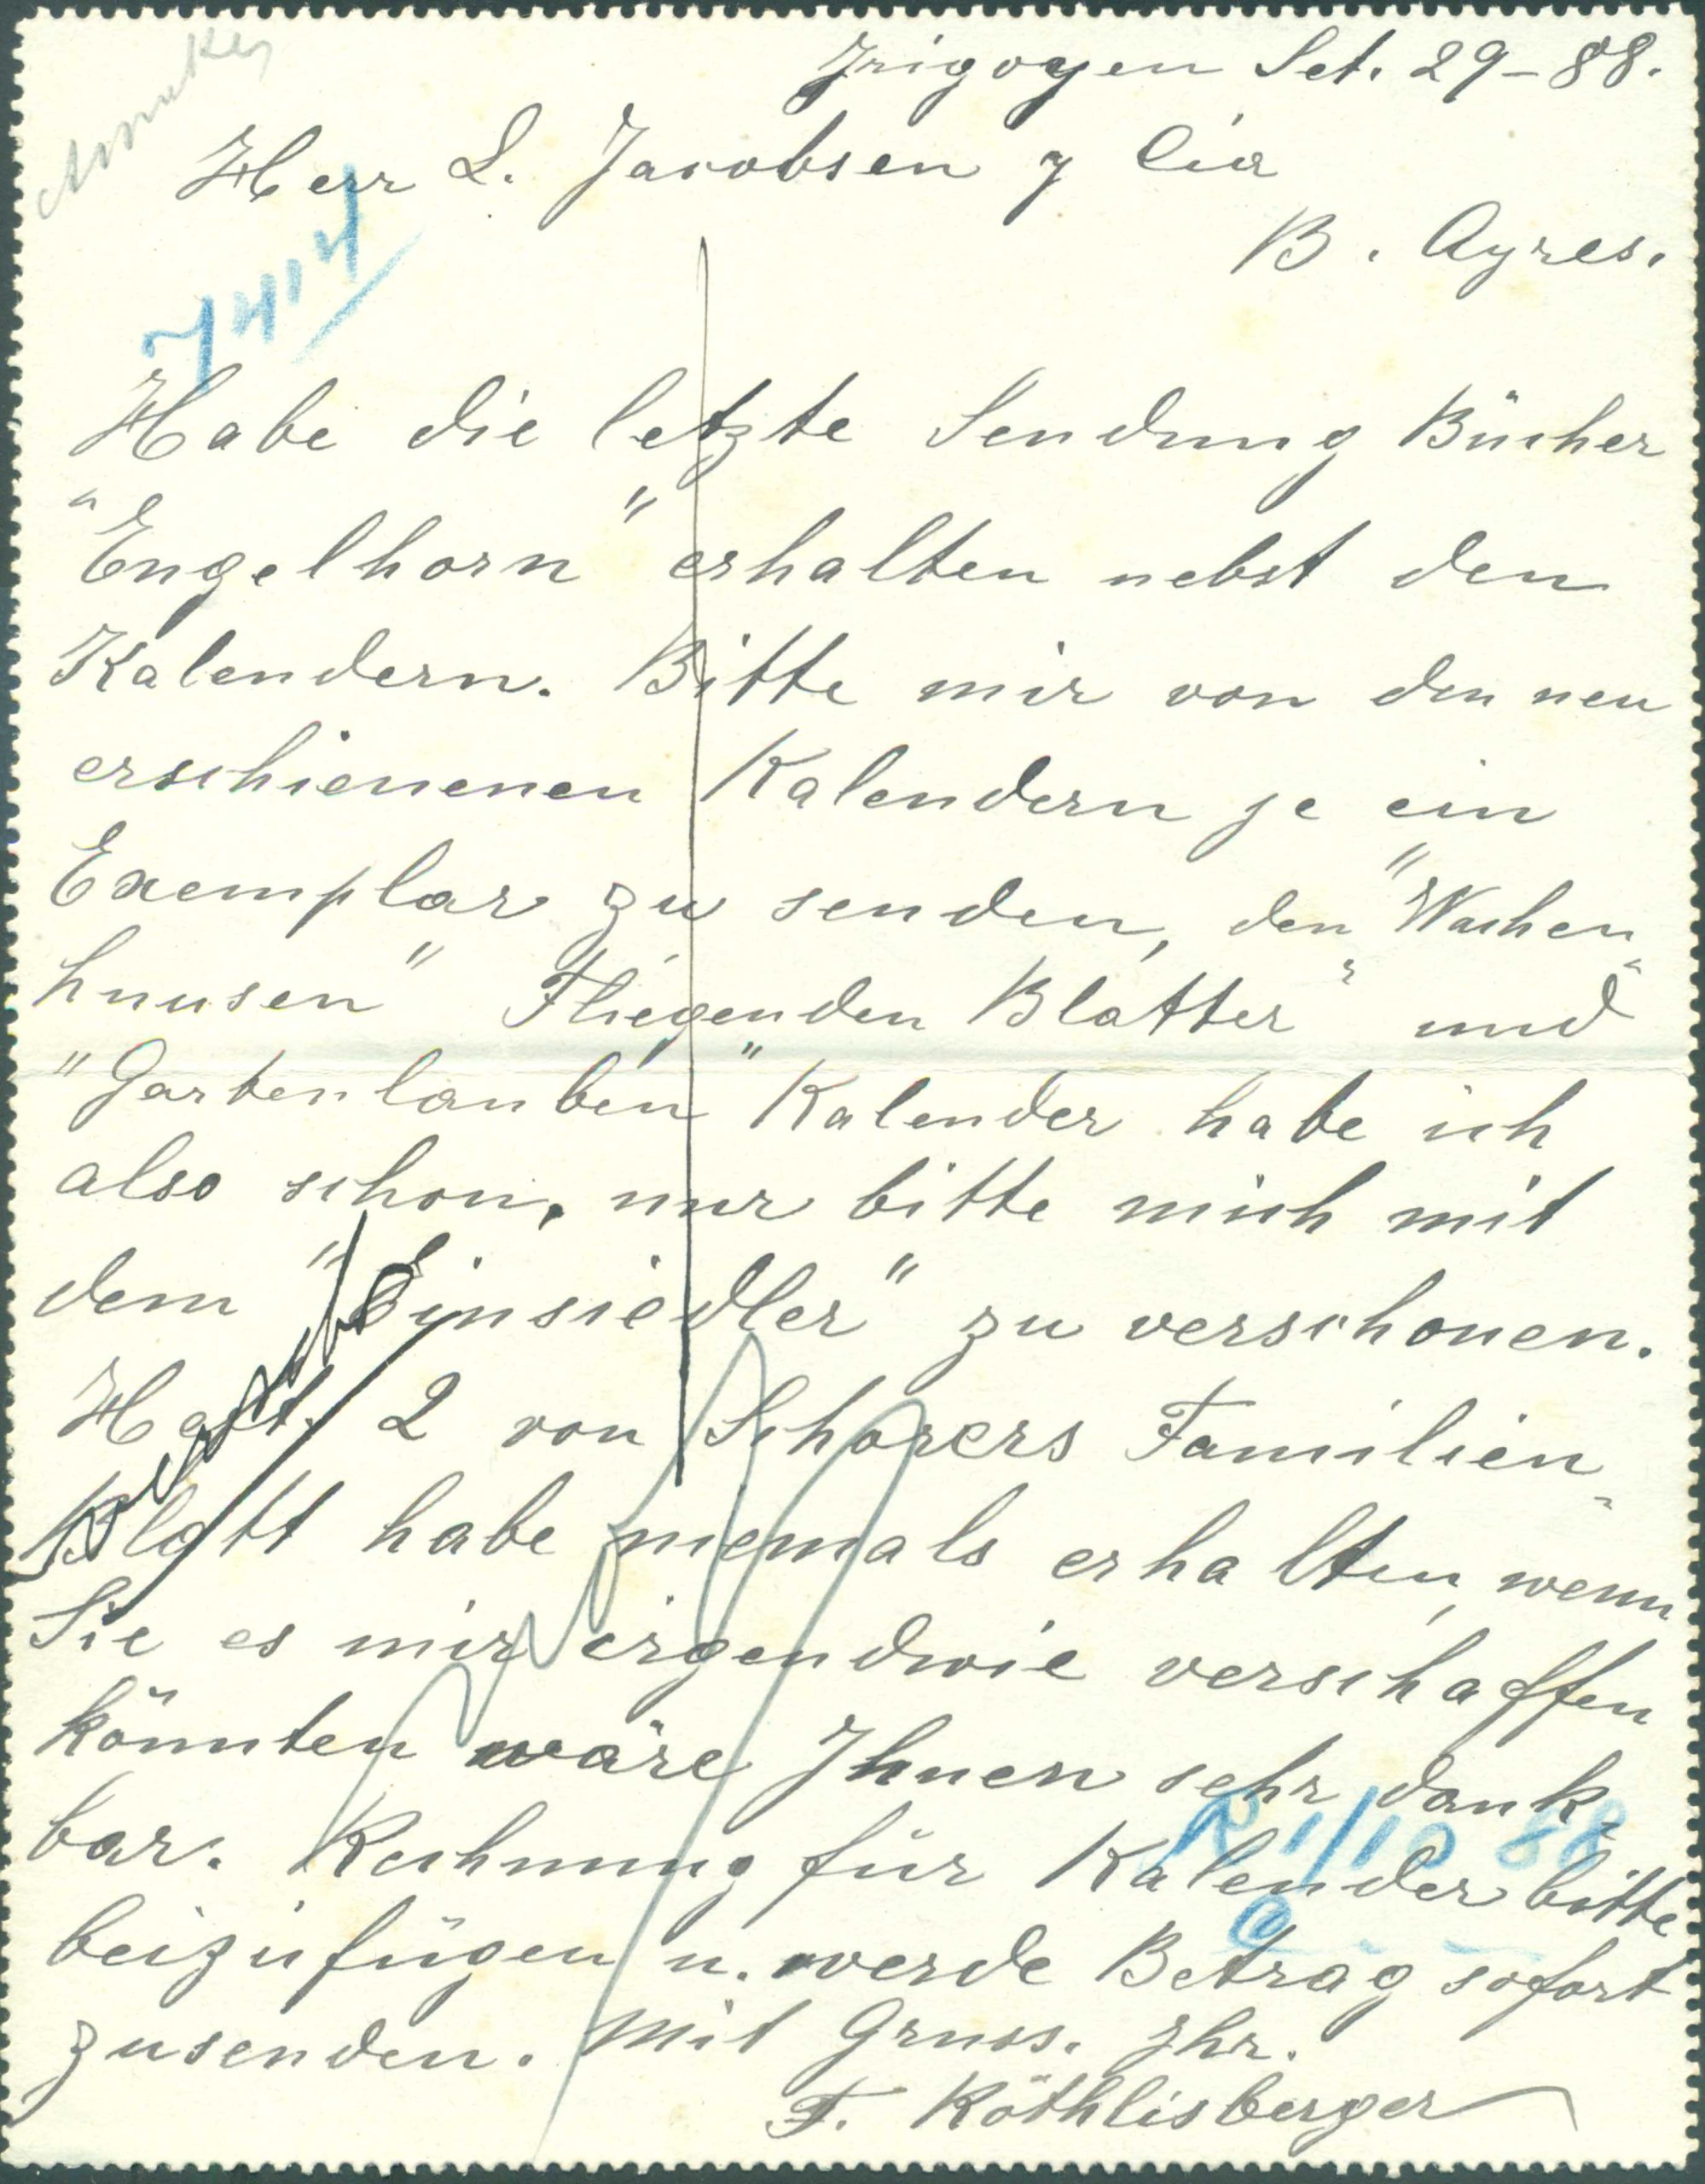 Irigoyen Set. 29-88.
Herr L. Jacobsen y Cía
B. Ayres.
7414
Habe die letzte Sendung Bücher
"Engelhorn" erhalten nebst den
Kalendern. Bitte mir von den neu
erschienenen Kalendern je ein
Exemplar zu senden, den "Wachen-
husen" Fliegenden Blätter" und
"Gartenlauben" Kalender habe ich
also schon, nur bitte mich mit
dem "Einsiedler" zu verschonen.
Heft. 2 von Schorers Familien-
Blatt habe niemals erhalten, wenn
Sie es mir irgendwie verschaffen
könnten wäre Ihnen sehr dank-
bar. Rechnung für Kalender bitte
R 1/10 88
beizufügen u. werde Betrag sofort
zusenden. Mit Gruss. Ihr.
F. Röthlisberger